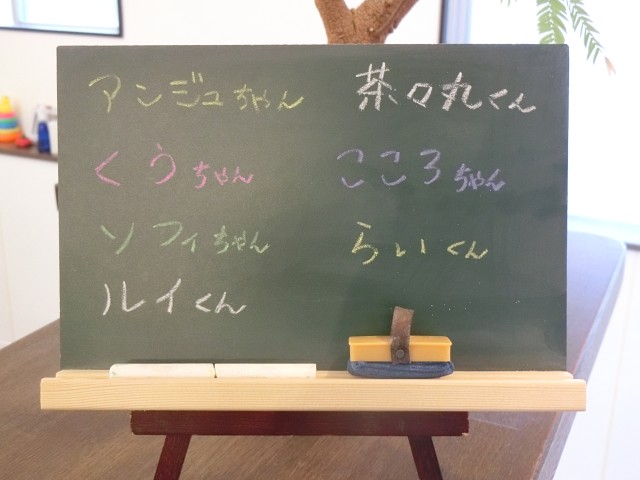 アンジュちゃん 茶々丸くん
くうちゃん こころちゃん
ソフィちゃん らいくん
ルイくん